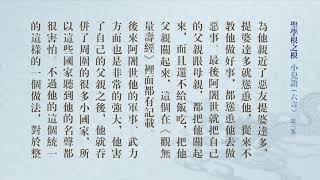 聖學根之根 小兒語（六言） 第二集
為他親近了惡友提婆多，
提婆多就慫恿他，從來不
教他做好事，都慫恿他去做
惡事。最後阿闍世就把自己
的父親跟母親，都把他關起
來，而且還不給飯吃，把他
父親關起來，這個在《觀無
量壽經》裡面都有記載
後來阿闍世他的軍事、武力
方面也是非常的強大，他害
了自己的父親之後，他就吞
併了周圍的很多小國家，所
以這些國家聽到他的名聲都
很害怕。不過他的這個統一
的這樣的一個做法，對於整